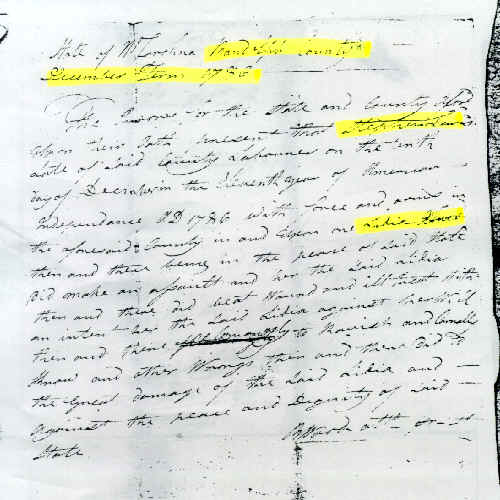 State of N Carolina Randolph County
December Term 1786
The Jurors for the State and County
upon their Oath present that Stephen Lewis
late of said County Labourer on the tenth
day of December in the Eleventh year of American
Independance AD 1786 with force and arms in
the aforesaid County in and upon one Lidia
then and there being in the peace of said State
Did make an assault and her the said Lidia
then and there did beat Wound and illtreat with
an intent her the said Lidia against her will
then and there feloniously to Ravish and Carnally
Know and other Wrongs then and there did to
the Great damage of the said Lidia and
against the peace and Dignity of said
State